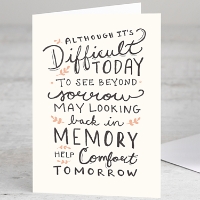 ALTHOUGH IT'S
Difficult
TODAY
TO SEE BEYOND
sorrow
MAY LOOKING
back in
MEMORY
HELP Comfort
TOMORROW